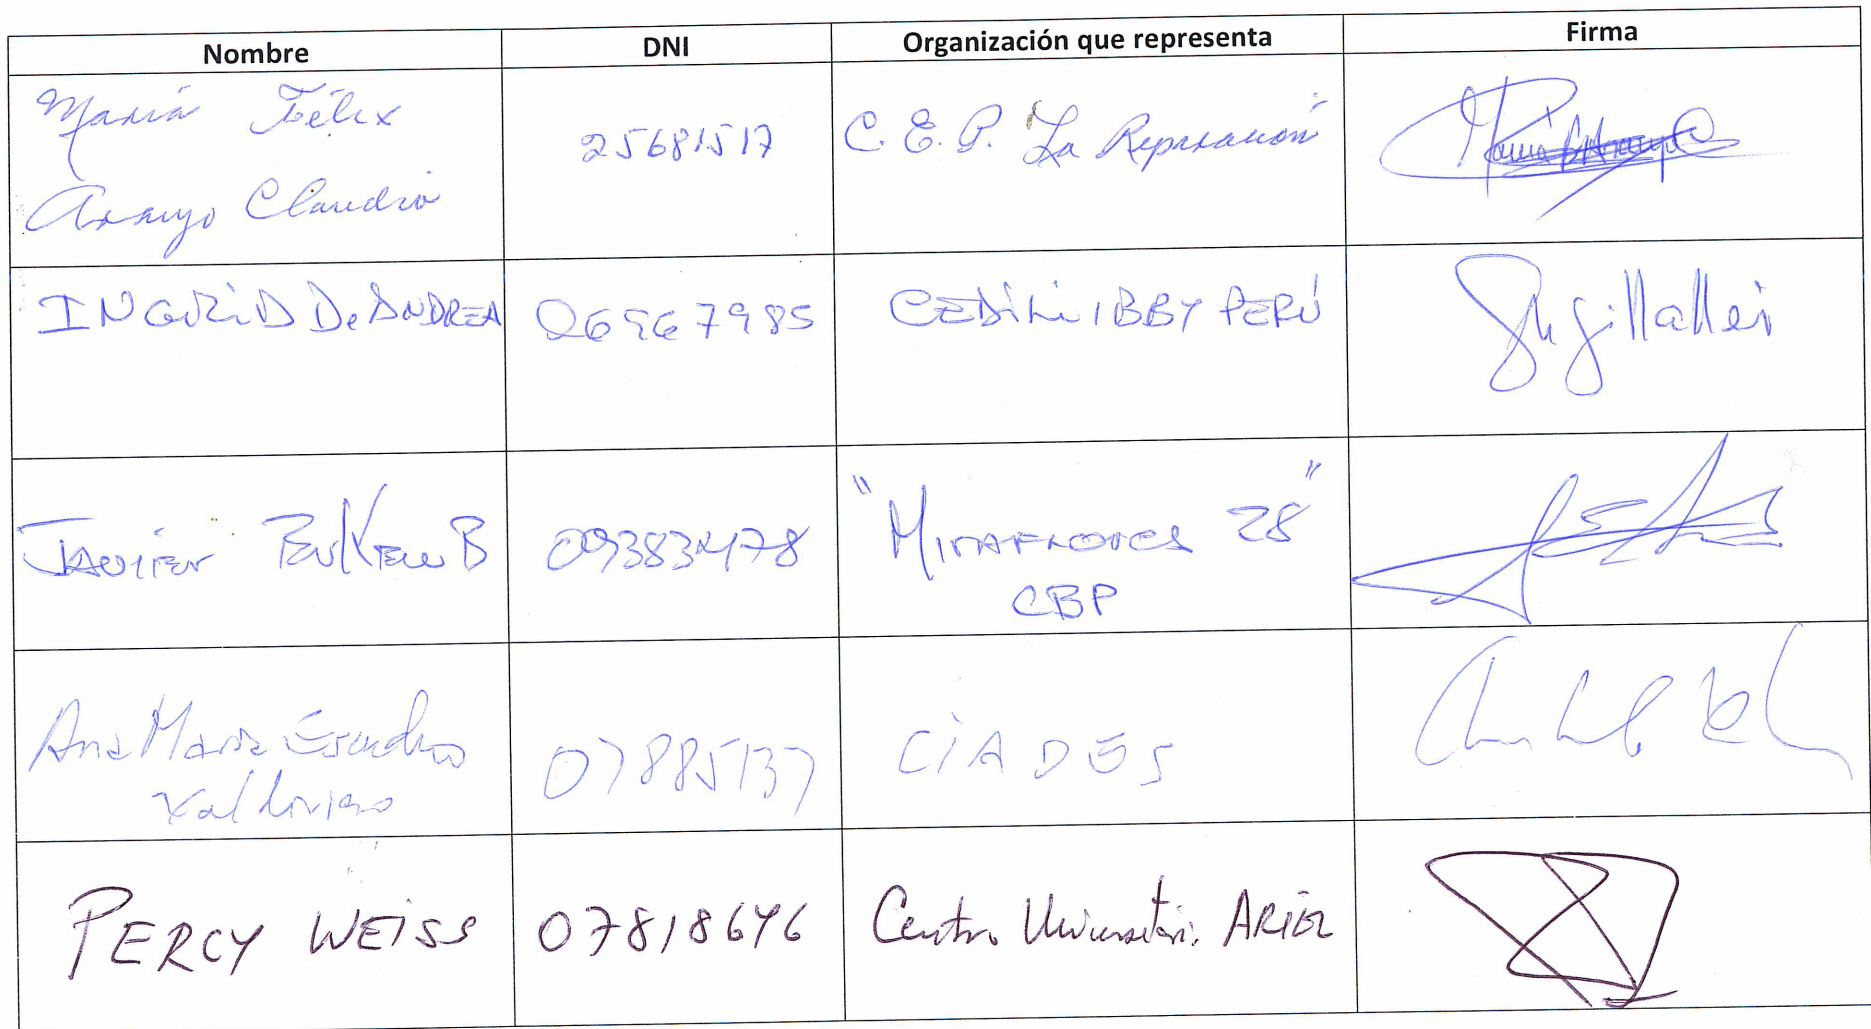 Nombre DNI Organización que representa Firma
María Félix
Araujo Claudio 25681517 C. E. P. La Reparación
INGRID De ANDREA CEDILI IBBY PERÚ
Javier B 09383478 "MIRAFLORES 28"
CBP
Ana María Escudero
07885137 CIADES
PERCY WEISS 07818646 Centro Universitario ARIEL